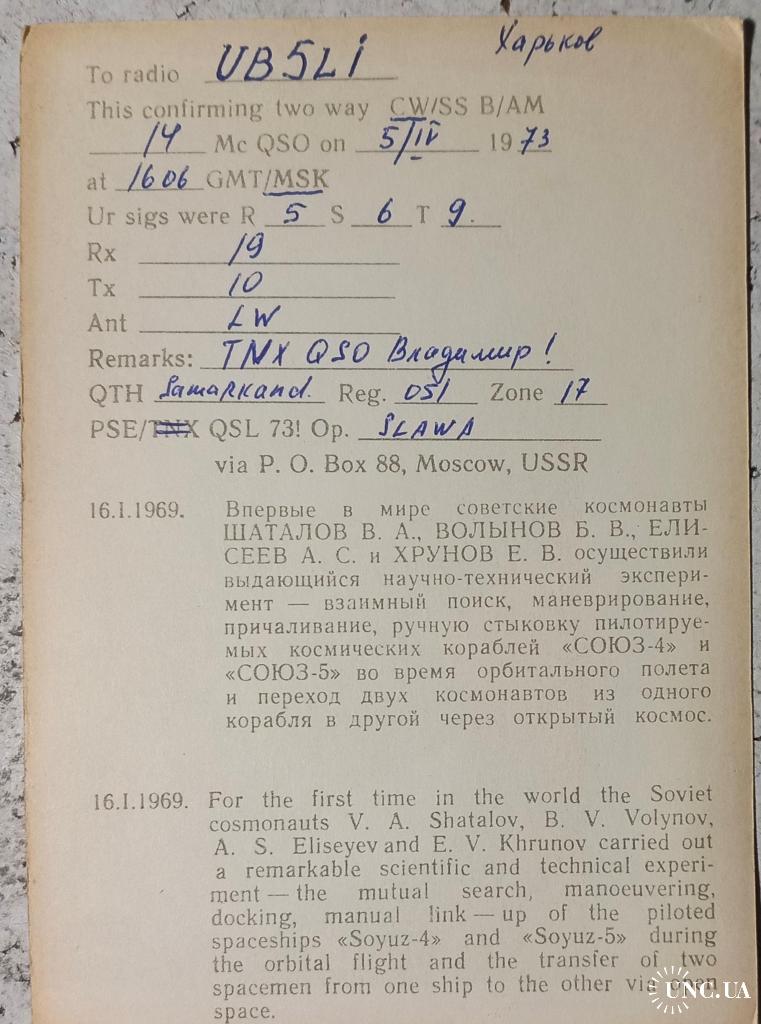 Харьков
To radio UB5LI
This confirming two way CW/SS B/AM
14 Mc QSO on 5/IV 1973
at 1606 GMT/MSK
Ur sigs were R 5 S 6 T 9.
Rx 19
Tx 10
Ant LW
Remarks: TNX QSO Владимир!
QTH Samarkand. Reg. 051 Zone 17
PSE/TNX QSL 73! Op. SLAWA
via P. O. Box 88, Moscow, USSR
16.I.1969. Впервые в мире советские космонавты
ШАТАЛОВ В. А., ВОЛЫНОВ Б. В., ЕЛИ-
СЕЕВ А. С. и ХРУНОВ Е. В. осуществили
выдающийся научно-технический экспери-
мент — взаимный поиск, маневрирование,
причаливание, ручную стыковку пилотируе-
мых космических кораблей «СОЮЗ-4» и
«СОЮЗ-5» во время орбитального полета
и переход двух космонавтов из одного
корабля в другой через открытый космос.
16.I.1969. For the first time in the world the Soviet
cosmonauts V. A. Shatalov, B. V. Volynov,
A. S. Eliseyev and E. V. Khrunov carried out
a remarkable scientific and technical experi-
ment — the mutual search, manoeuvering,
docking, manual link — up of the piloted
spaceships «Soyuz-4» and «Soyuz-5» during
the orbital flight and the transfer of two
spacemen from one ship to the other via open
space.
UNC.UA